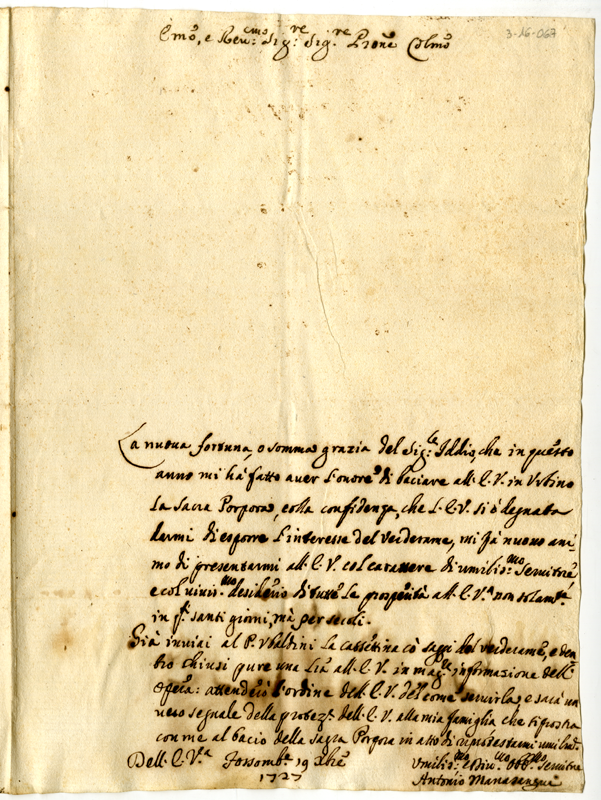 3-16-067
Emo, e Rev.cmo Sig.re Sig.re Prone Colmo
La nuova fortuna, o somma grazia del Sig.re Iddio, che in questo
anno mi hà fatto aver l'onore di baciare all' E. V. in Urbino
la Sacra Porpora, colla confidenza, che l' E. V. si è degnata
darmi di esporre l'interesse del verderame, mi fà nuovo ani-
mo di presentarmi all' E. V. col carattere di umilis.mo Servitre
e col vivis.mo desiderio di tutte le prosperità all' E. V.a non solam.te
in q.ti santi giorni, mà per secoli.
Già inviai al P. Ubaldini la cassettina cō saggi del verderame, e den-
tro chiusi pure una Lra all' E. V. in informazione dell'
Opera: attenderò l'ordine dell' E. V. del come servirla, e sarà un
vero segnale della protez.e dell' E. V. alla mia famiglia che si prostra
con me al bacio della sagra Porpora in atto di
Dell' E. V.ra Fossomb.e 19 Xbre
1727
Umilis.mo Div.mo Obb.mo Servitre
Antonio